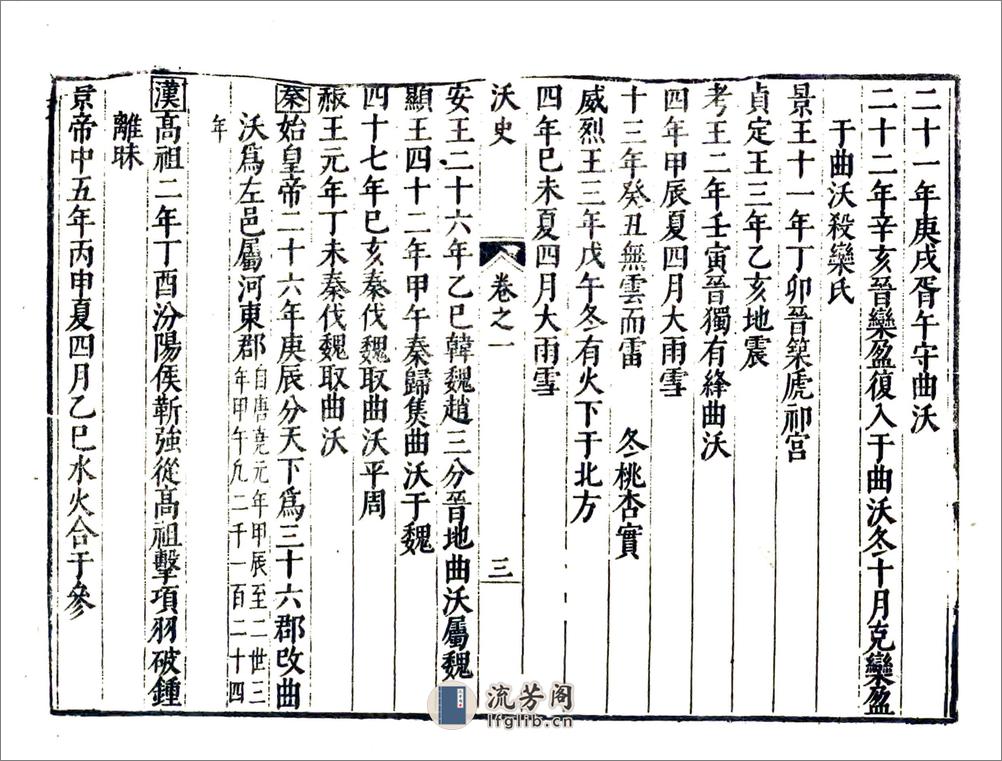 二十一年庚戌胥午守曲沃
二十二年辛亥晉欒盈復入于曲沃冬十月克欒盈
于曲沃殺欒氏
景王十一年丁卯晉築虒祁宮
貞定王三年乙亥地震
考王二年壬寅晉獨有絳曲沃
四年甲辰夏四月大雨雪
十三年癸丑無雲而雷　冬桃杏實
威烈王三年戊午冬有火下于北方
四年已未夏四月大雨雪
沃史　卷之一　三
安王二十六年乙巳韓魏趙三分晉地曲沃屬魏
顯王四十二年甲午秦歸集曲沃于魏
四十七年已亥秦伐魏取曲沃平周
赧王元年丁未秦伐魏取曲沃
秦始皇帝二十六年庚辰分天下爲三十六郡改曲
沃爲左邑屬河東郡自唐堯元年甲辰至二世三年甲午凡二千一百二十四
年
漢高祖二年丁酉汾陽侯靳強從高祖擊項羽破鍾
離昧
景帝中五年丙申夏四月乙巳水火合于參
流芳阁
lfglib.cn